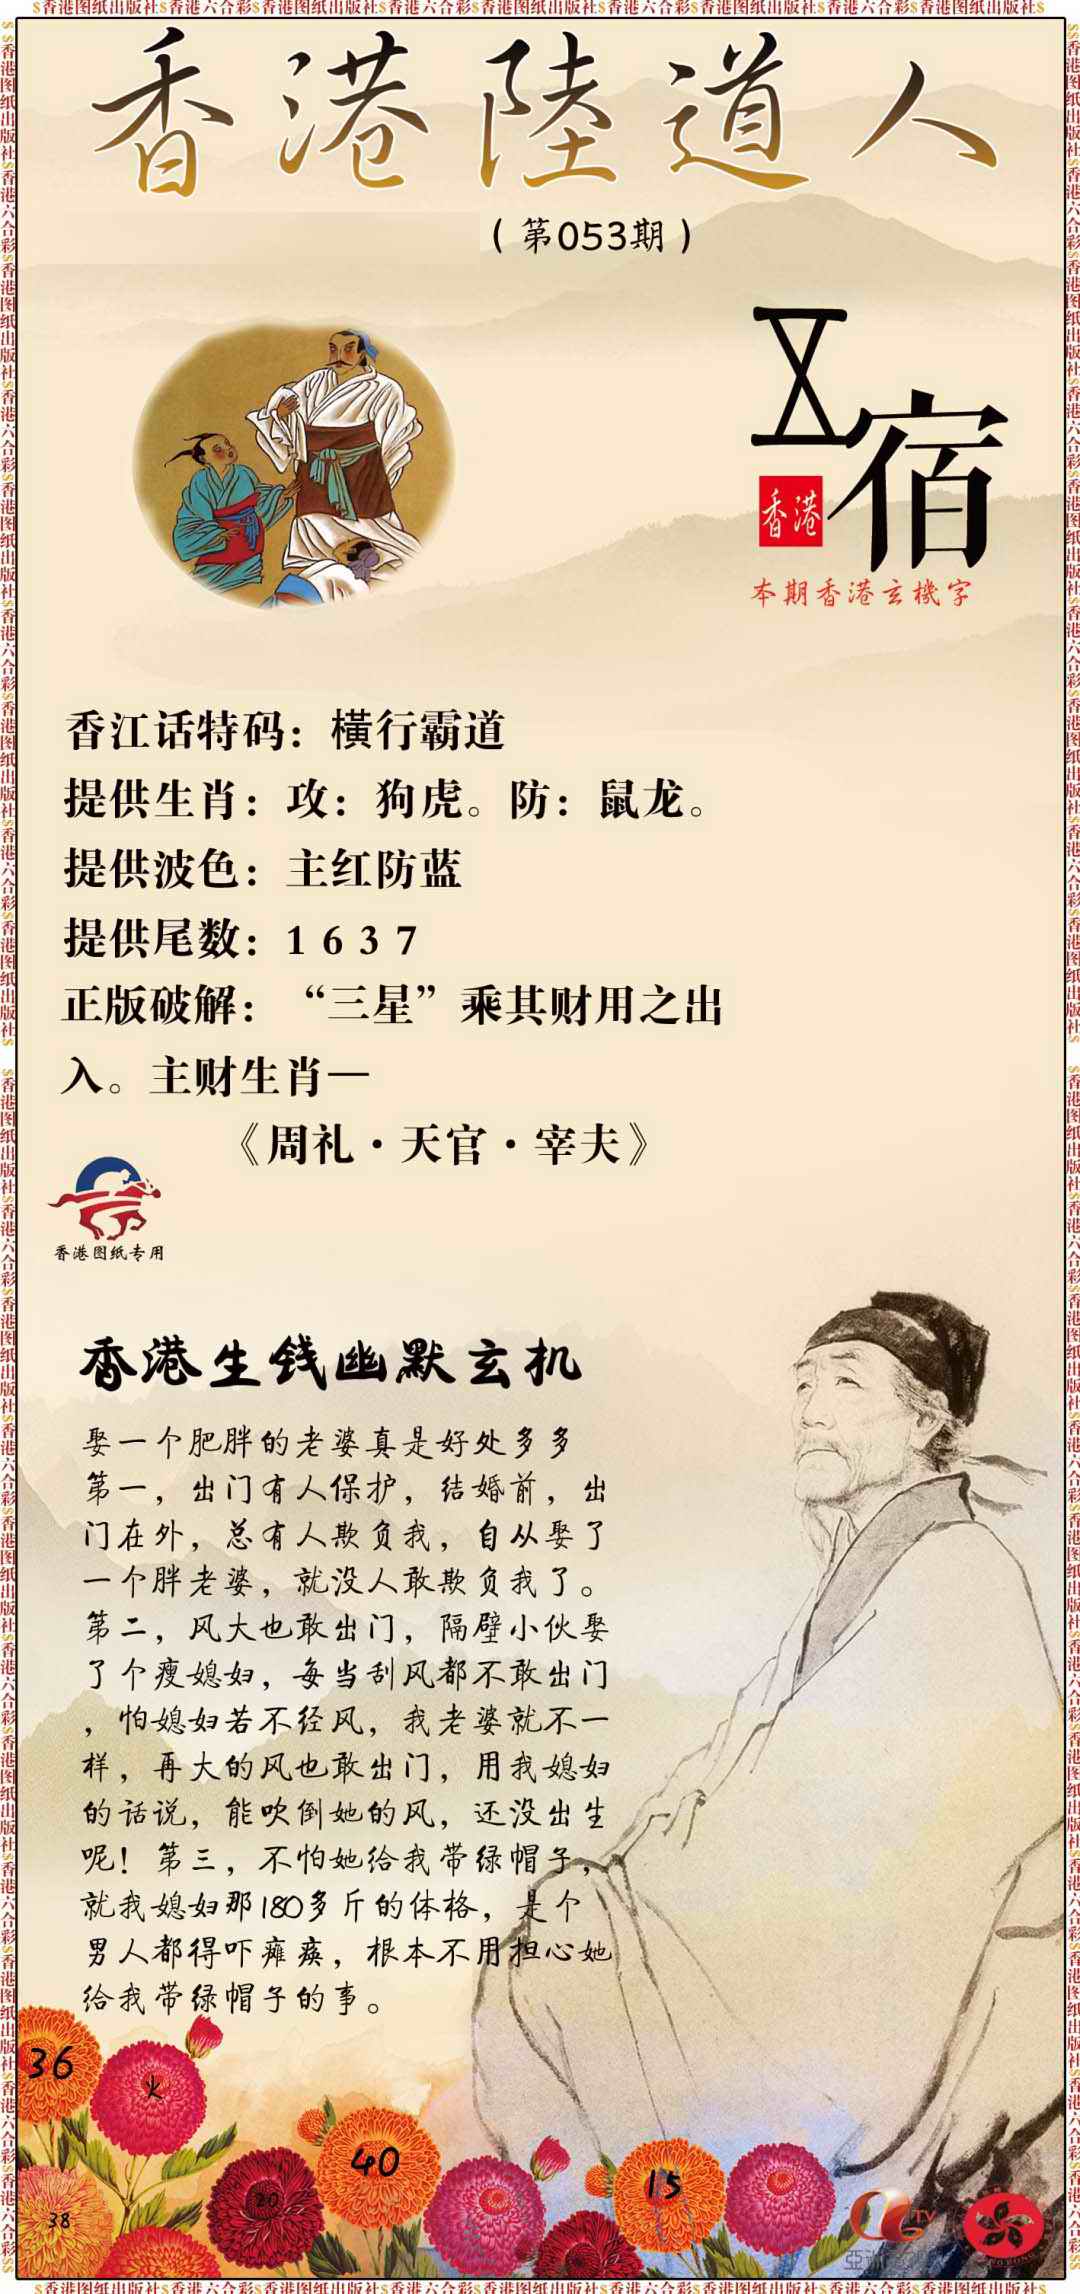 $香港图纸出版社$香港六合彩$香港图纸出版社$香港六合彩$香港图纸出版社$香港六合彩$香港图纸出版社$
香港陸道人
（第053期）
宿
香港
本期香港玄機字
香江话特码：橫行霸道
提供生肖：攻：狗虎。防：鼠龙。
提供波色：主红防蓝
提供尾数：1 6 3 7
正版破解：“三星”乘其财用之出
入。主财生肖—
《周礼·天官·宰夫》
香港图纸专用
香港生钱幽默玄机
娶一个肥胖的老婆真是好处多多
第一，出门有人保护，结婚前，出
门在外，总有人欺负我，自从娶了
一个胖老婆，就没人敢欺负我了。
第二，风大也敢出门，隔壁小伙娶
了个瘦媳妇，每当刮风都不敢出门
，怕媳妇若不经风，我老婆就不一
样，再大的风也敢出门，用我媳妇
的话说，能吹倒她的风，还没出生
呢！第三，不怕她给我带绿帽子，
就我媳妇那180多斤的体格，是个
男人都得吓瘫痪，根本不用担心她
给我带绿帽子的事。
36
火
40
15
20
38
TV
$香港图纸出版社$香港六合彩$香港图纸出版社$香港六合彩$香港图纸出版社$香港六合彩$香港图纸出版社$